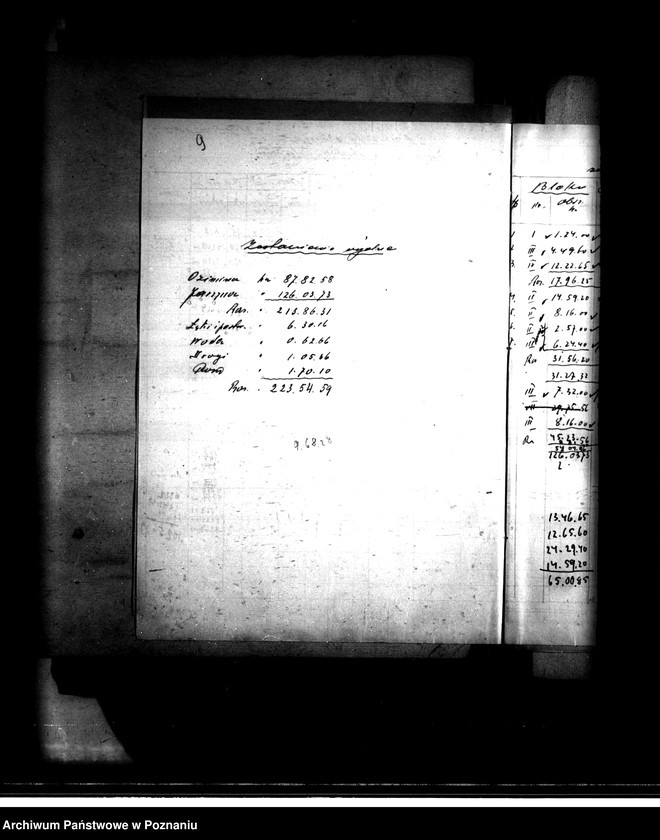 9
Zestawienie ogólne
Ozimina ha 87.82.58
Jarzyna " 126.03.73
Raz. " 213.86.31
Łąki i past. " 6.30.16
Woda " 0.62.66
Drogi " 1.05.66
" 1.70.10
Raz. " 223.54.59
9.68.28
Bloku
Nr. Obsz.
1 I 1.24.00
III 4.49.60
3. II 12.22.65
Raz. 17.96.25
II 14.59.20
5. II 8.16.00
6. II 2.57.00
7. III 6.24.40
Ra 31.56.20
31.27.32
III 7.32.00
III 8.16.00
Ra 45.23.56
126.03.73
13.46.65
12.65.60
24.29.40
14.59.20
65.00.85
Archiwum Państwowe w Poznaniu